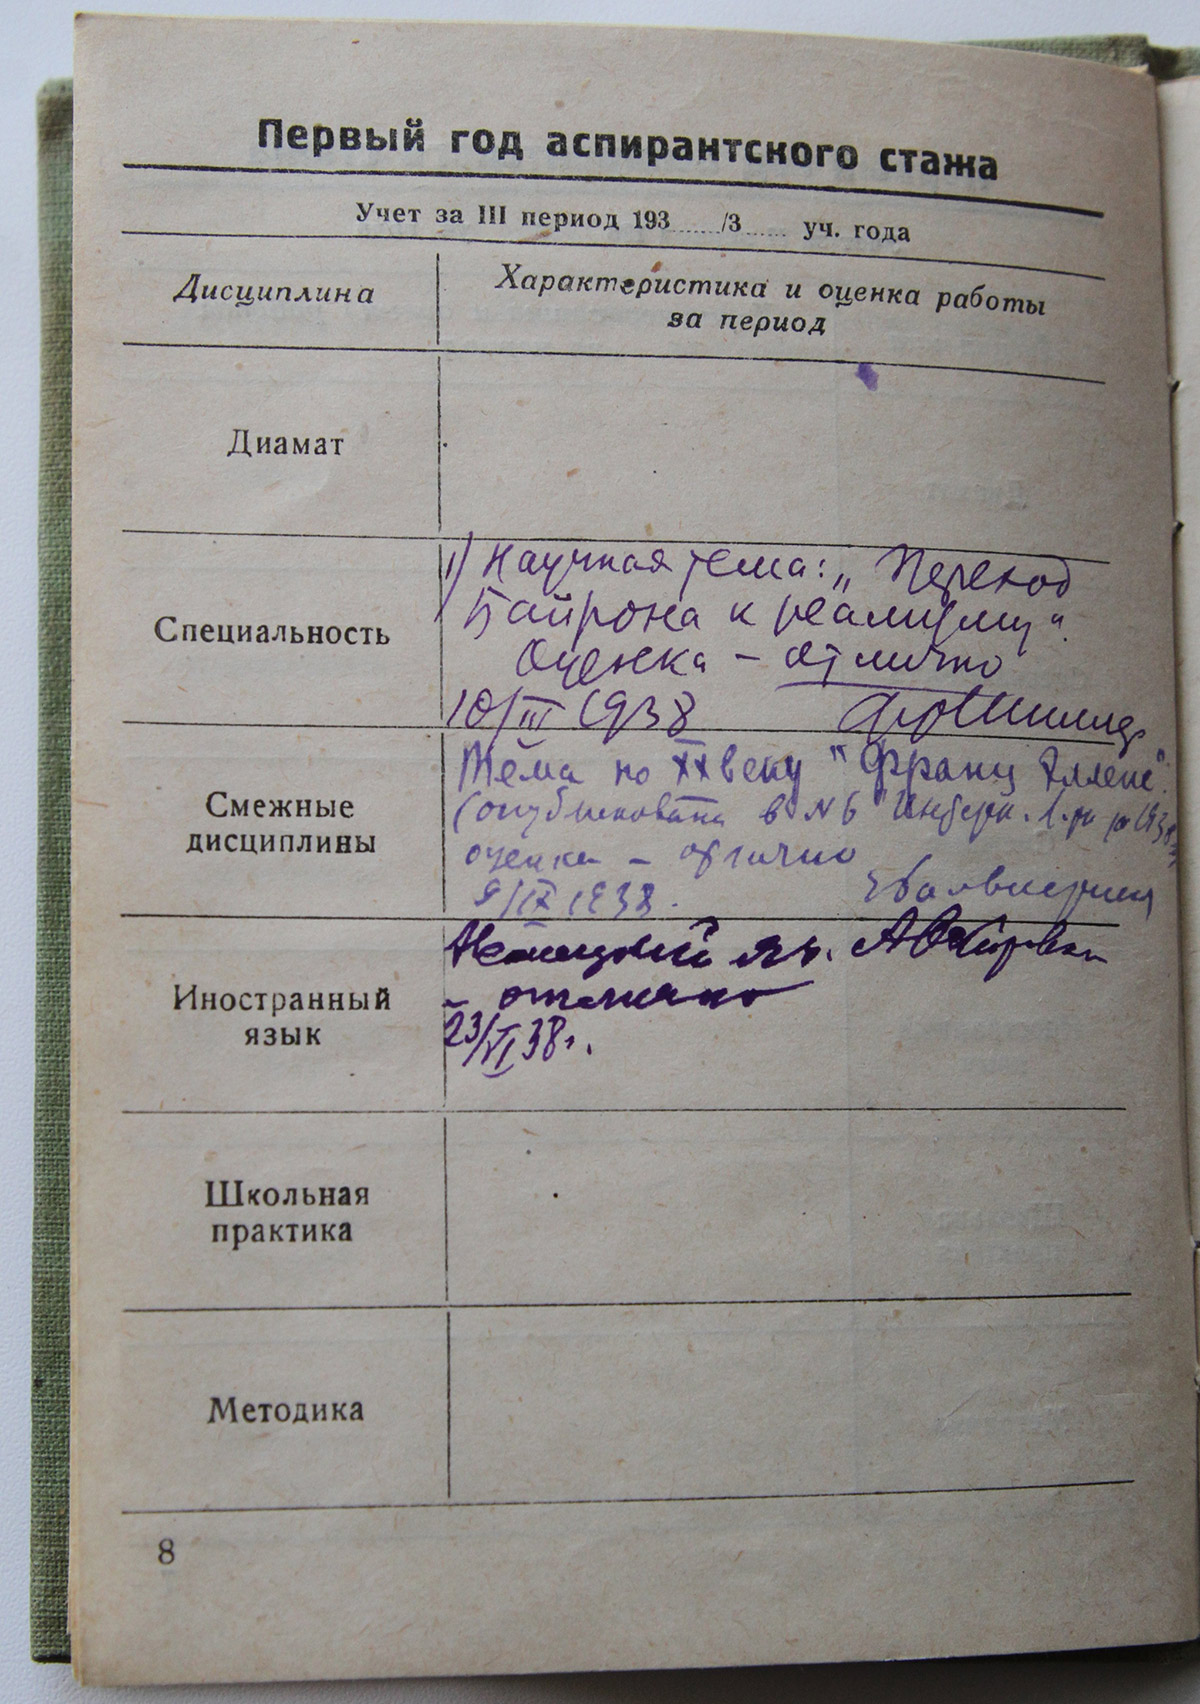 Первый год аспирантского стажа
Учет за III период 193....../3...... уч. года
Дисциплина
Характеристика и оценка работы
за период
Диамат
Специальность
1) Научная тема: „Переход
Байрона к реализму“.
Оценка – отлично
10/III 1938
Смежные
дисциплины
Тема по XX веку "Франц Элленс".
(опубликована в №6 Интерн. л-ры
оценка – отлично
9/IX 1938.
Иностранный
язык
Немецкий яз.
– отлично
23/VI 38г.
Школьная
практика
Методика
8